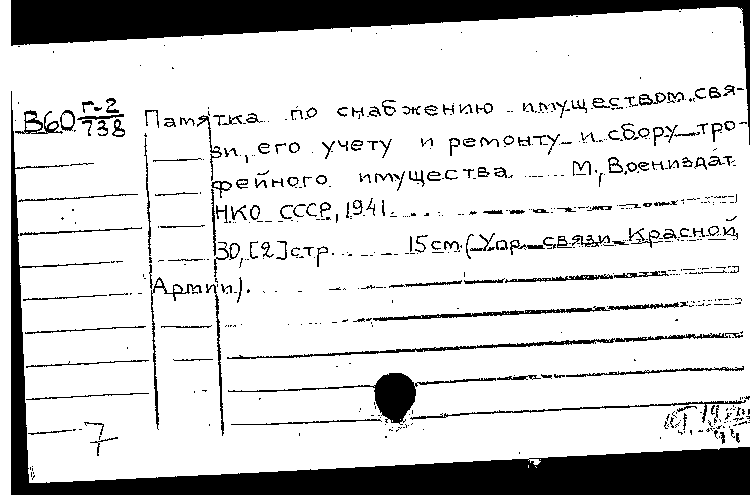 В60 Г-2/738 Памятка по снабжению имуществом свя-
зи, его учету и ремонту и сбору тро-
фейного имущества М., Воениздат
НКО СССР, 1941.
30, [2] стр. 15 см (Упр. связи Красной
Армии).
7